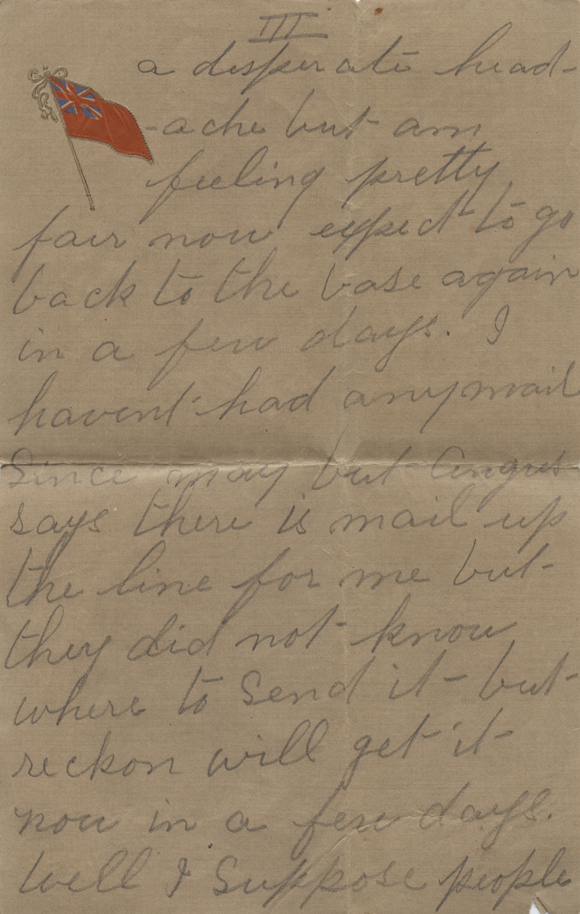 III
a desperate head-
-ache but am
feeling pretty
fair now expect to go
back to the base again
in a few days. I
havent had any mail
Since may but Angus
says there is mail up
the line for me but
they did not know
where to Send it but
reckon will get it
now in a few days.
Well I Suppose people